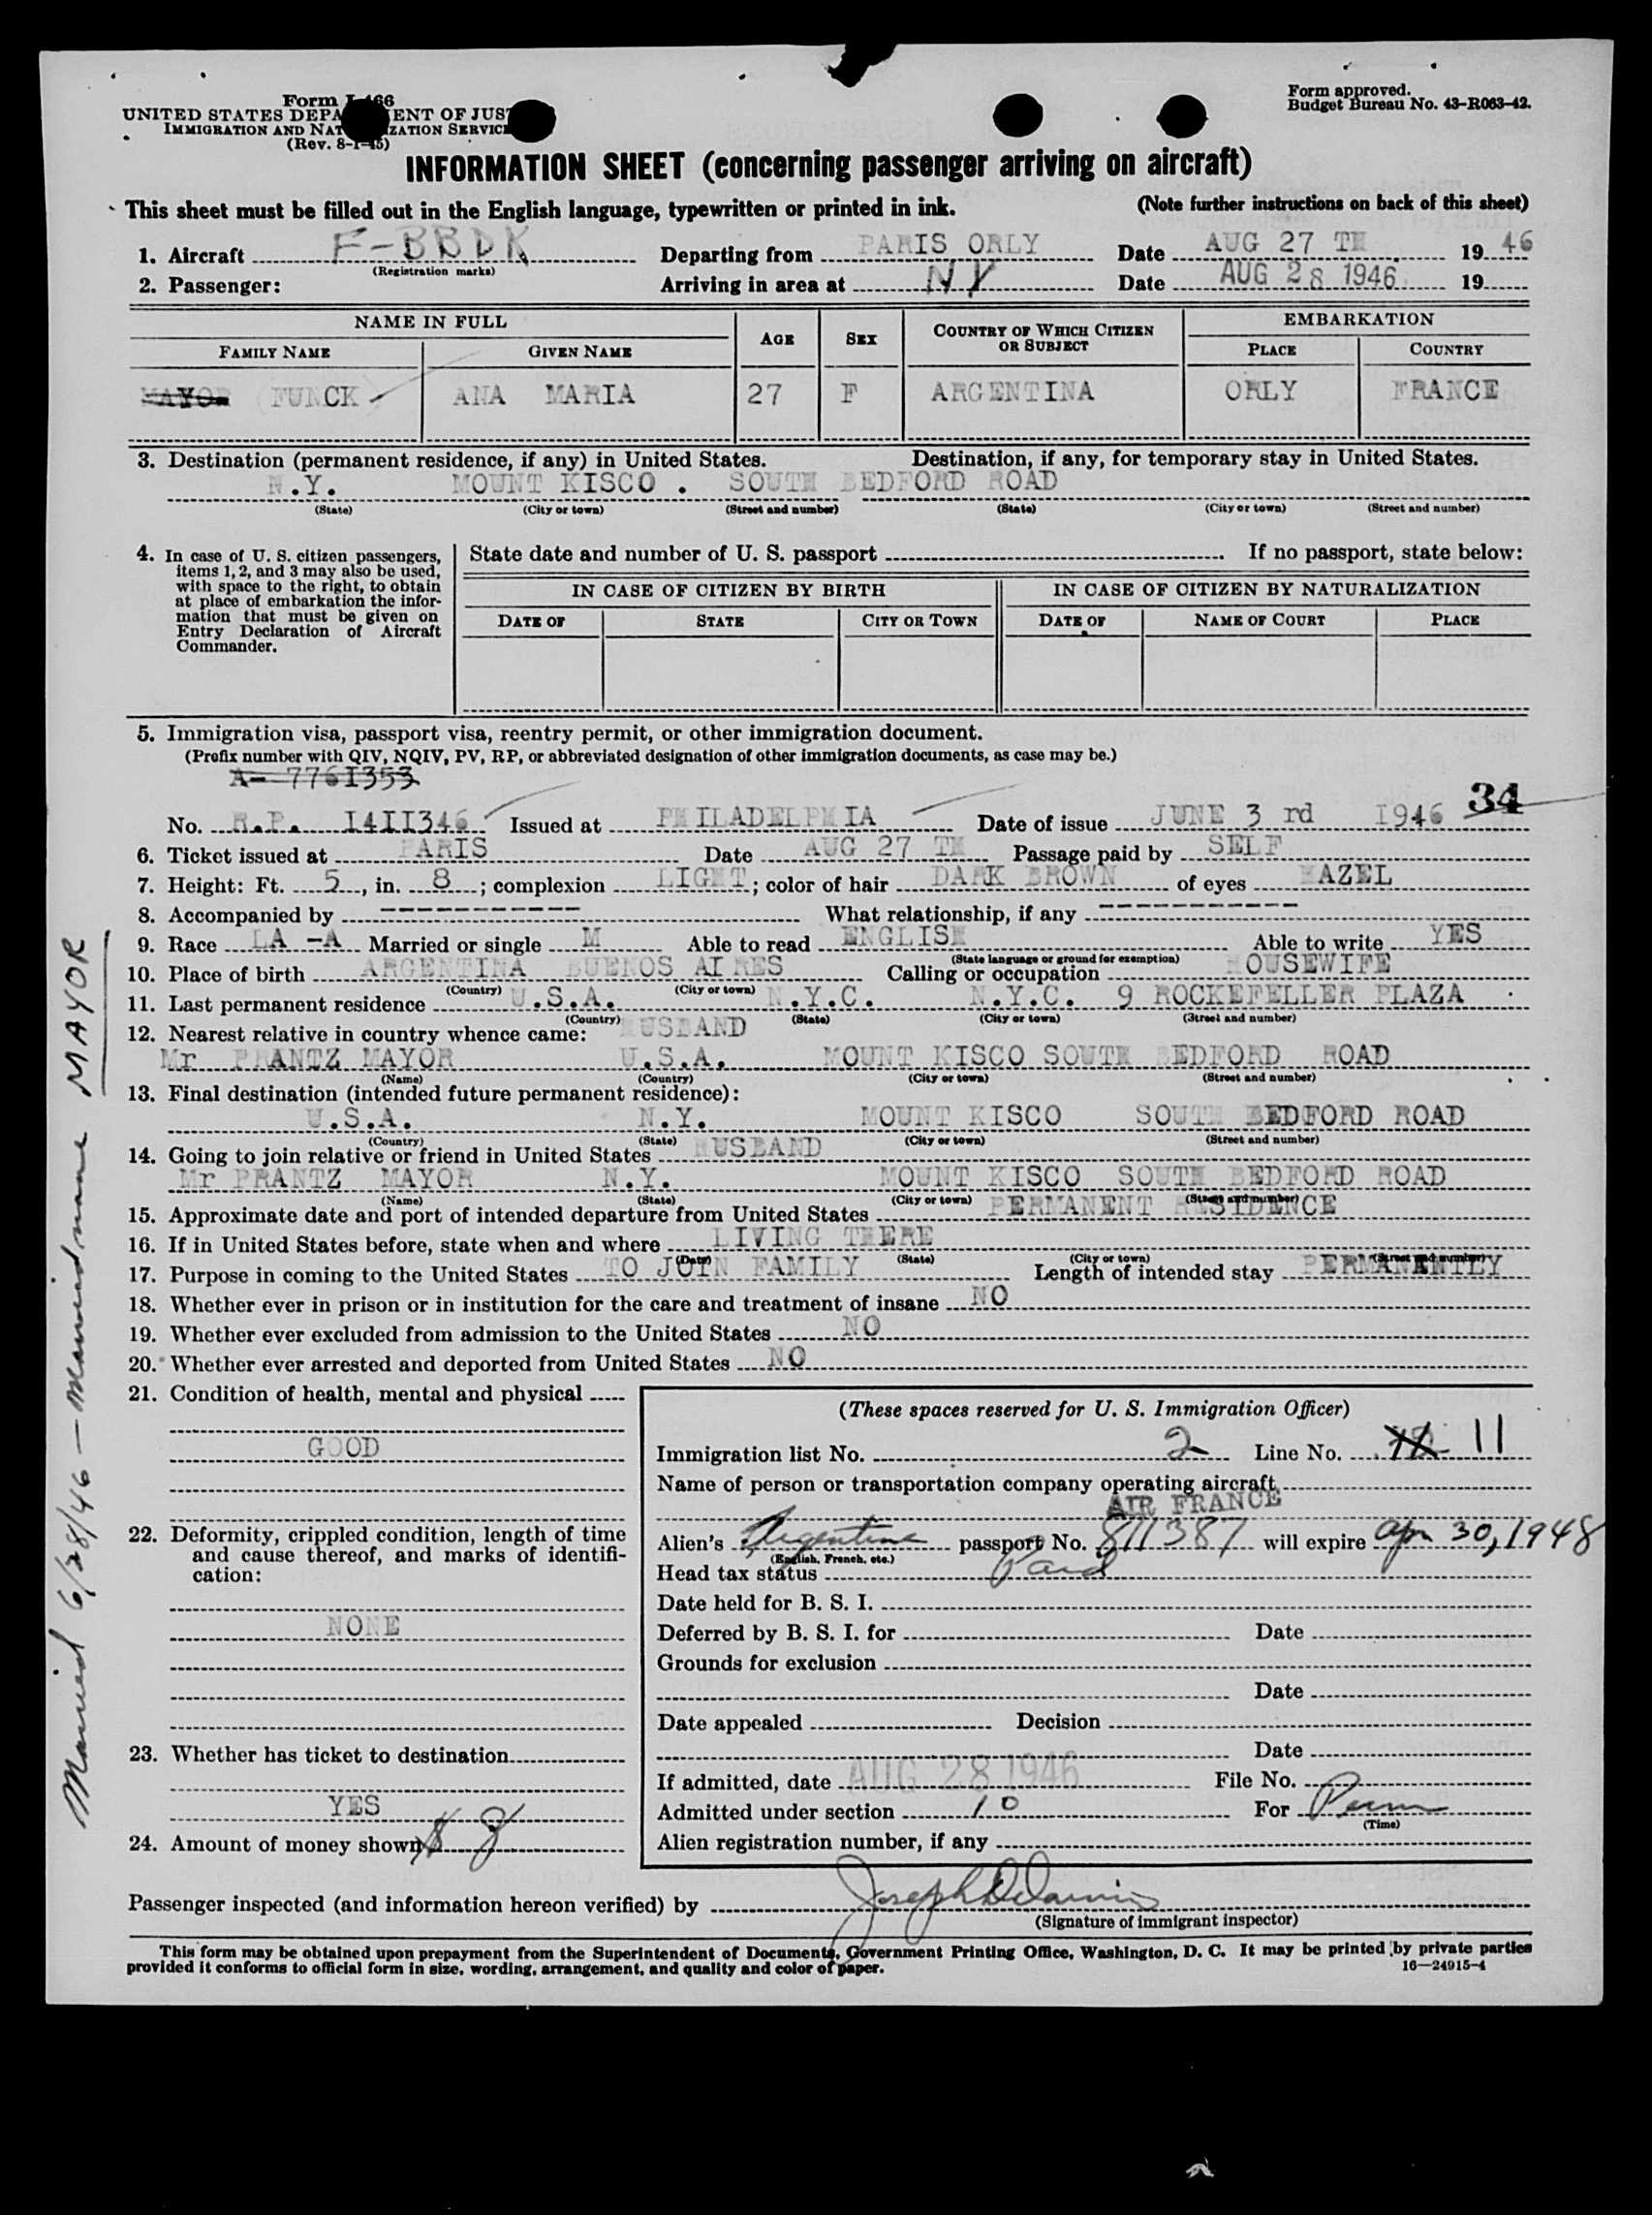 Form I-466
UNITED STATES DEPARTMENT OF JUSTICE
IMMIGRATION AND NATURALIZATION SERVICE
(Rev. 8-1-45)
Form approved.
Budget Bureau No. 43-R063-42.
INFORMATION SHEET (concerning passenger arriving on aircraft)
This sheet must be filled out in the English language, typewritten or printed in ink. (Note further instructions on back of this sheet)
1. Aircraft F-BBDK Departing from PARIS ORLY Date AUG 27 TH 19 46
(Registration marks)
2. Passenger: Arriving in area at NY Date AUG 28 1946 19
NAME IN FULL AGE SEX COUNTRY OF WHICH CITIZEN OR SUBJECT EMBARKATION
FAMILY NAME GIVEN NAME PLACE COUNTRY
MAYOR FUNCK ANA MARIA 27 F ARGENTINA ORLY FRANCE
3. Destination (permanent residence, if any) in United States. Destination, if any, for temporary stay in United States.
N.Y. MOUNT KISCO . SOUTH BEDFORD ROAD
(State) (City or town) (Street and number) (State) (City or town) (Street and number)
4. In case of U. S. citizen passengers, items 1, 2, and 3 may also be used, with space to the right, to obtain at place of embarkation the information that must be given on Entry Declaration of Aircraft Commander.
State date and number of U. S. passport If no passport, state below:
IN CASE OF CITIZEN BY BIRTH IN CASE OF CITIZEN BY NATURALIZATION
DATE OF STATE CITY OR TOWN DATE OF NAME OF COURT PLACE
5. Immigration visa, passport visa, reentry permit, or other immigration document.
(Prefix number with QIV, NQIV, PV, RP, or abbreviated designation of other immigration documents, as case may be.)
A- 7761353
34
No. R.P. I4II346 Issued at PHILADELPHIA Date of issue JUNE 3 rd I946
6. Ticket issued at PARIS Date AUG 27 TH Passage paid by SELF
7. Height: Ft. 5, in. 8; complexion LIGHT; color of hair DARK BROWN of eyes HAZEL
8. Accompanied by ------------ What relationship, if any ------------
9. Race LA -A Married or single M Able to read ENGLISH Able to write YES
(State language or ground for exemption)
10. Place of birth ARGENTINA BUENOS AIRES Calling or occupation HOUSEWIFE
(Country) (City or town)
11. Last permanent residence U.S.A. N.Y.C. N.Y.C. 9 ROCKEFELLER PLAZA
(Country) (State) (City or town) (Street and number)
12. Nearest relative in country whence came: HUSBAND
Mr PRANTZ MAYOR U.S.A. MOUNT KISCO SOUTH BEDFORD ROAD
(Name) (Country) (City or town) (Street and number)
13. Final destination (intended future permanent residence):
U.S.A. N.Y. MOUNT KISCO SOUTH BEDFORD ROAD
(Country) (State) (City or town) (Street and number)
14. Going to join relative or friend in United States HUSBAND
Mr PRANTZ MAYOR N.Y. MOUNT KISCO SOUTH BEDFORD ROAD
(Name) (State) (City or town) (Street and number)
15. Approximate date and port of intended departure from United States PERMANENT RESIDENCE
16. If in United States before, state when and where LIVING THERE
(Date) (State) (City or town) (Street and number)
17. Purpose in coming to the United States TO JOIN FAMILY Length of intended stay PERMANENTLY
18. Whether ever in prison or in institution for the care and treatment of insane NO
19. Whether ever excluded from admission to the United States NO
20. Whether ever arrested and deported from United States NO
21. Condition of health, mental and physical
GOOD
22. Deformity, crippled condition, length of time and cause thereof, and marks of identification:
NONE
23. Whether has ticket to destination
YES
24. Amount of money shown $ 8
(These spaces reserved for U. S. Immigration Officer)
Immigration list No. 2 Line No. 11
Name of person or transportation company operating aircraft
AIR FRANCE
Alien's Argentine passport No. 811387 will expire Apr 30, 1948
(English, French, etc.)
Head tax status Paid
Date held for B. S. I.
Deferred by B. S. I. for Date
Grounds for exclusion
Date
Date appealed Decision
Date
If admitted, date AUG 28 1946 File No.
Admitted under section 10 For Perm
(Time)
Alien registration number, if any
Passenger inspected (and information hereon verified) by
(Signature of immigrant inspector)
This form may be obtained upon prepayment from the Superintendent of Documents, Government Printing Office, Washington, D. C. It may be printed by private parties
provided it conforms to official form in size, wording, arrangement, and quality and color of paper. 16—24915-4
Married 6/28/46 — Married name MAYOR